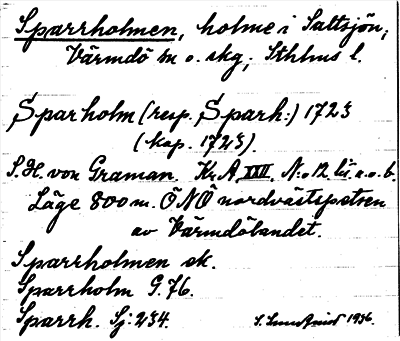 Sparrholmen, holme i Saltsjön;
Värmdö sn o. skg; Sthlms l.
Sparholm (resp. Sparh:) 1723
(kop. 1723).
S. H. von Graman. Kr. A. XXII. N:o 12 lit. a. o. b.
Läge 800 m. ÖNÖ nordvästspetsen
av Värmdölandet.
Sparrholmen ek.
Sparrholm G. 76.
Sparrh. Sj: 234.
1936.